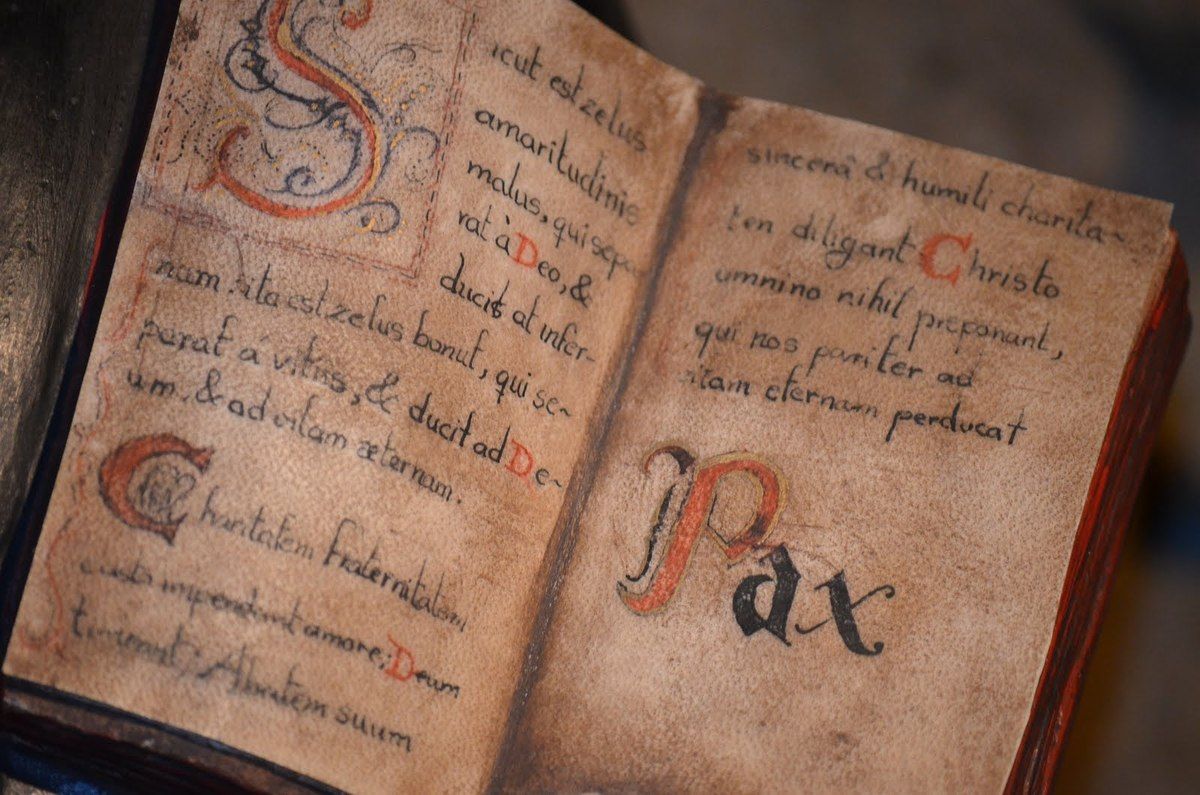 Sicut est zelus
amaritudinis
malus, qui sepa
rat à Deo, &
ducit at infer-
num. ita est zelus bonut, qui se~
parat a vitiis, & ducit ad De~
um. & ad vitam æternam.
Charitatem fraternitatem
casto impendunt amore; Deum
timeant; Abbatem suum
sincerâ & humili charita~
ten diligant Christo
umnino nihil preponant,
qui nos pariter ad
vitam eternam perducat
Pax